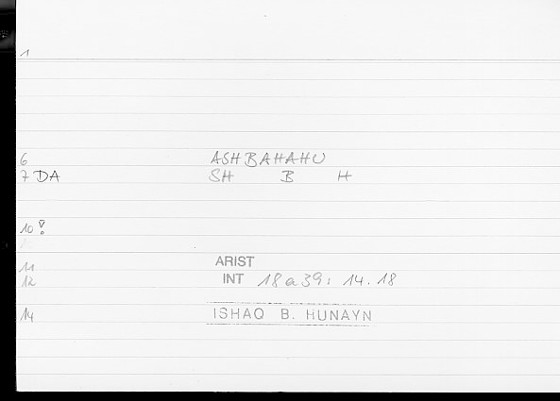 1
6 ASHBAHAHU
7 DA SH B H
10 :
11 ARIST
12 INT 18a39: 14.18
14 ISHAQ B. HUNAYN